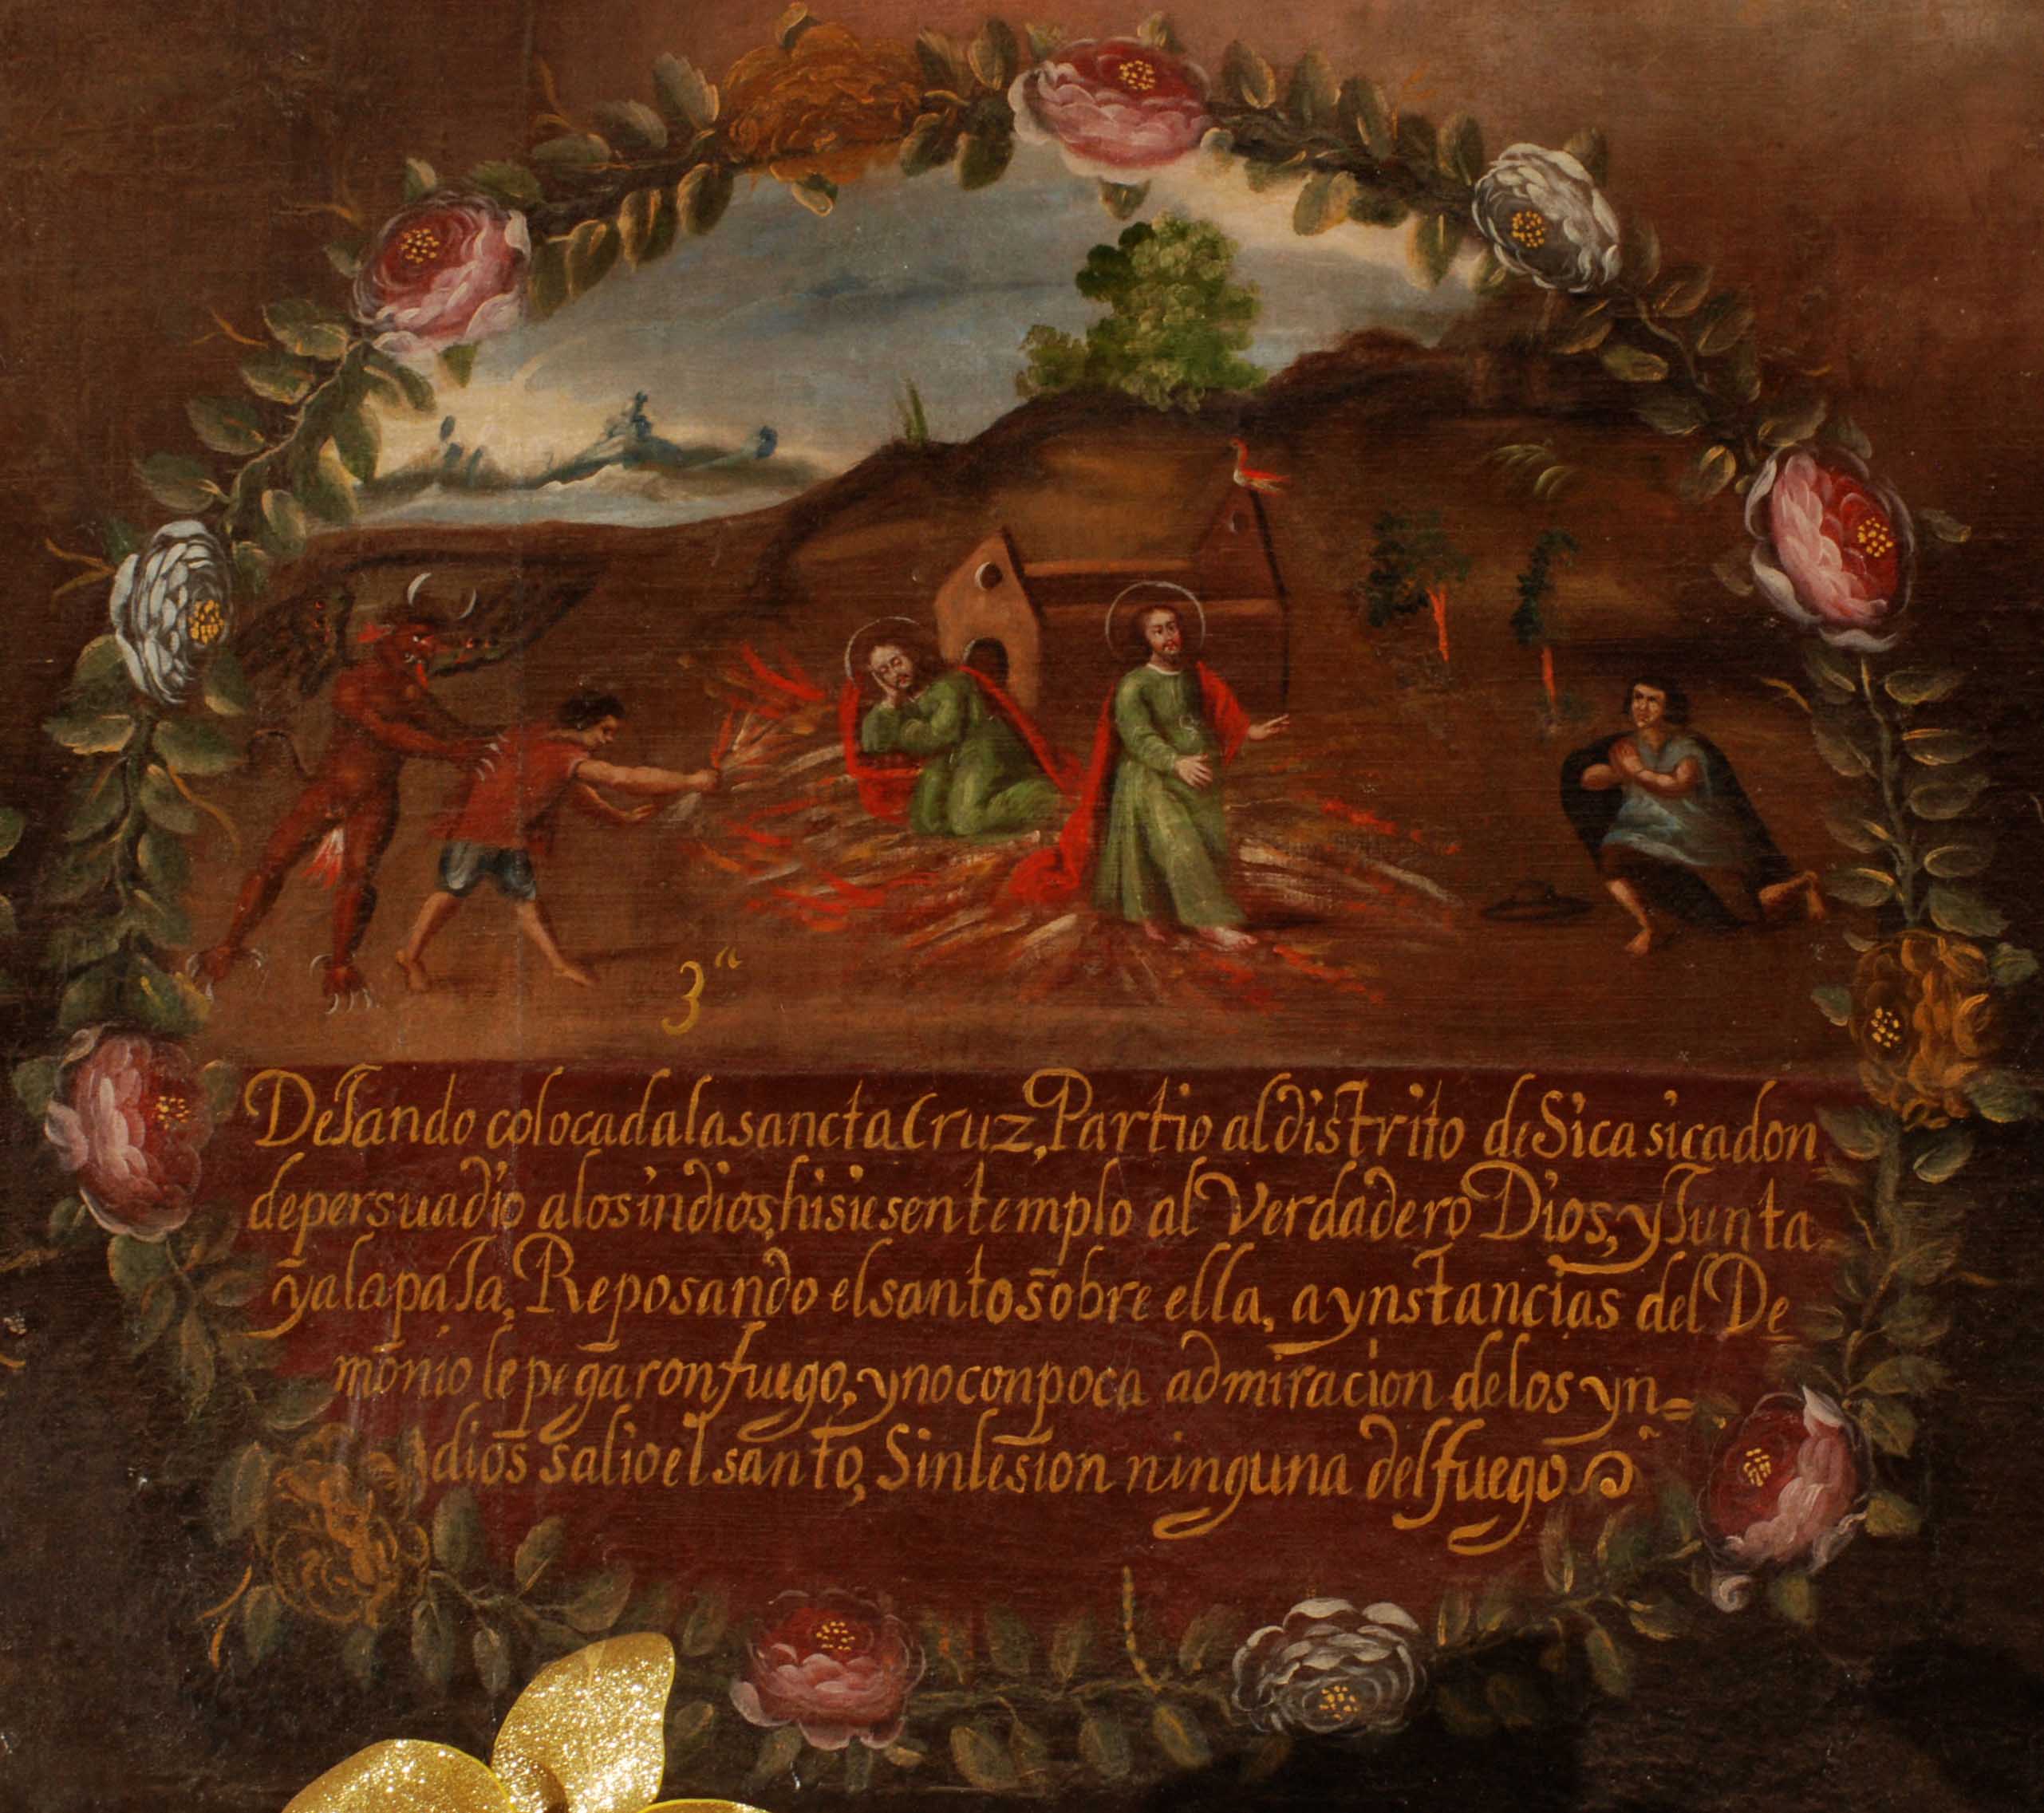 3ª
DeJando colocada la sancta Cruz, Partio al distrito de Sicasica don
de persuadio a los indios, hisiesen templo al Verdadero Dios, y Junta
ỹa la paJa, Reposando el santo sobre ella, a ynstancias del De
monio le pegaron fuego, y no con poca admiracion de los yn=
dios salio el santo, Sin lesion ninguna del fuego